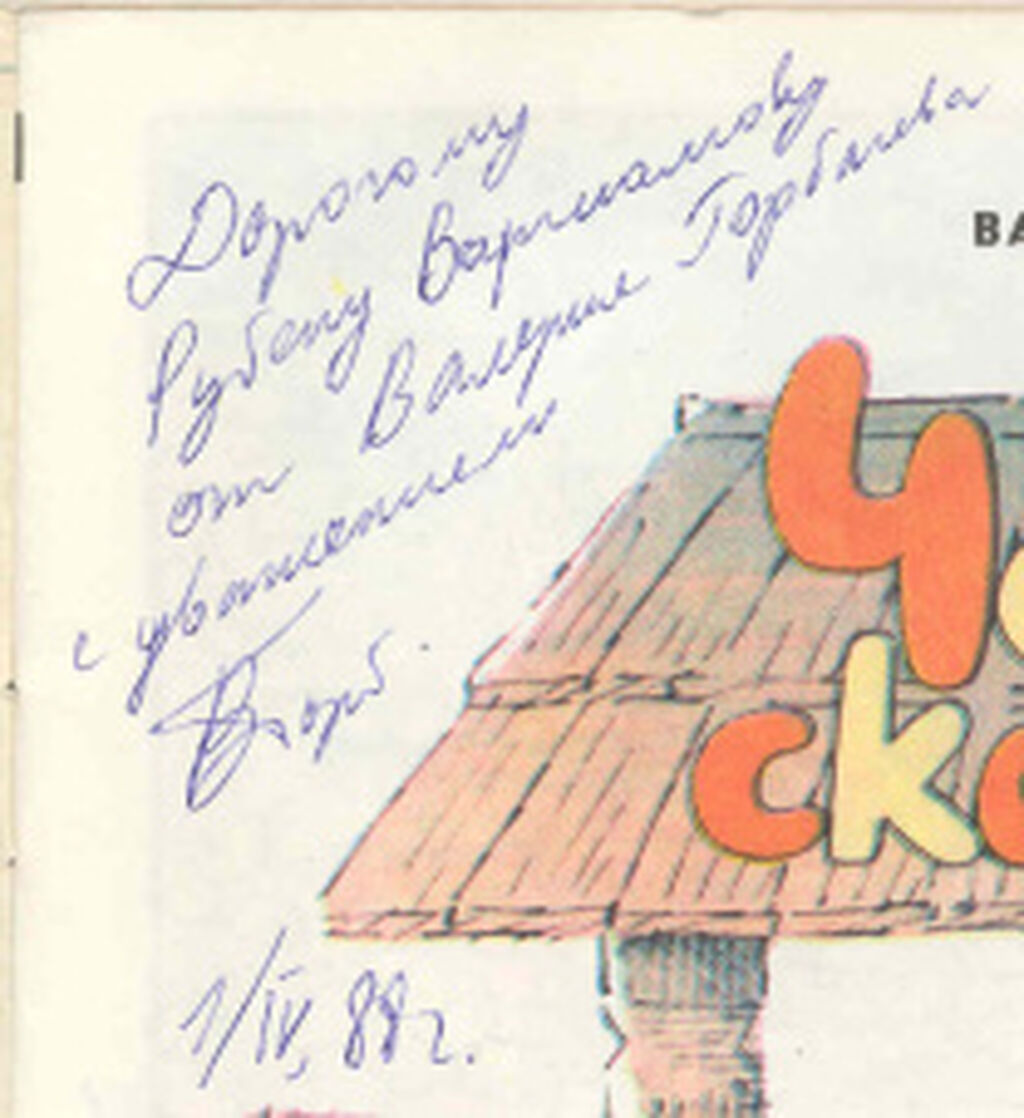 Дорогому
Рубену Варшамову
от Валерия Горбачева
с уважением
ВГорб.
1/IV, 88 г.
ВА
Че
ска